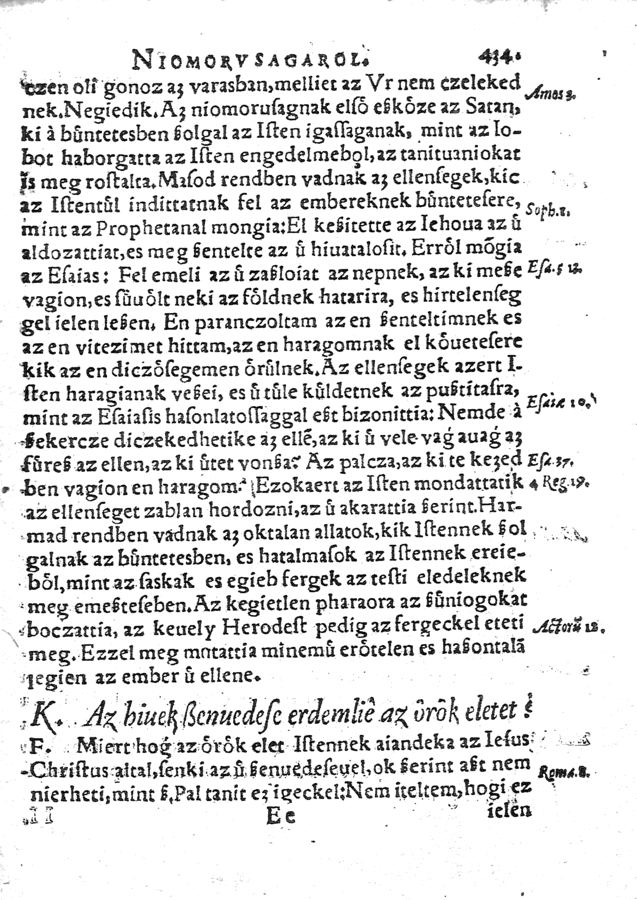 NIOMORVSAGAROL. 434.
czen olſ gonoz aʒ varasban, melliet az Vr nem czeleked Amos 3.
nek. Negiedik. Aʒ niomoruſagnak elſô eßkôze az Satan,
ki à bûntetesben ßolgal az Iſten igaſſaganak, mint az Io-
bot haborgatta az Iſten engedelmeból, az tanituaniokat
Is meg roſtalta. Maſod rendben vadnak aʒ ellenſegek, kic
az Iſtentûl indittatnak fel az embereknek bûnteteſere, Soph. 1.
mint az Prophetanal mongia: El keßitette az Iehoua az û
aldozattiat, es meg ßentelte az û hiuataloſit. Errôl mõgia
az Eſaias: Fel emeli az û zaßloiat az nepnek, az ki meße Eſa. 5 13.
vagion, es ſûuôlt neki az fôldnek hatarira, es hirtelenſeg
gel ielen leßen. En paranczoltam az en ßenteltimnek es
az en vitezimet hittam, az en haragomnak el kôueteſere
kik az en diczôſegemen ôrûlnek. Az ellenſegek azert I-
ſten haragianak veßei, es û tûle kûldetnek az pußtitaſra,
mint az Eſaiaſis haſonlatoſſaggal eßt bizonittia: Nemde à Eſaiæ 10.
ßekercze diczekedhetike aʒ ellẽ, az ki û vele vaǵ auaǵ aʒ
fûreß az ellen, az ki ûtet vonßa? Az palcza, az ki te keʒed Eſa. 37.
ben vagion en haragom. Ezokaert az Iſten mondattatik 4 Reg. 19.
az ellenſeget zablan hordozni, az û akarattia ßerint. Har-
mad rendben vadnak aʒ oktalan allatok, kik Iſtennek ßol
galnak az bûntetesben, es hatalmaſok az Iſtennek ereie-
bôl, mint az ſaskak es egieb fergek az teſti eledeleknek
meg emeßteſeben. Az kegietlen pharaora az ßûniogokat
boczattia, az keuely Herodeſt pedig az fergeckel eteti Actorũ 12.
meg. Ezzel meg mutattia minemû erôtelen es haßontalã
legien az ember û ellene.
K. Az hiuek ßenuedeſe erdemliê az ôrôk eletet?
F. Miert hoǵ az ôrôk elet Iſtennek aiandeka az Ieſus
Chriſtus altal, ſenki az û ßenuedeſeuel, ok ßerint aßt nem
nierheti, mint ß. Pal tanit eʒ igeckel: Nem iteltem, hogi ez Roma. 8.
II Ee ielen